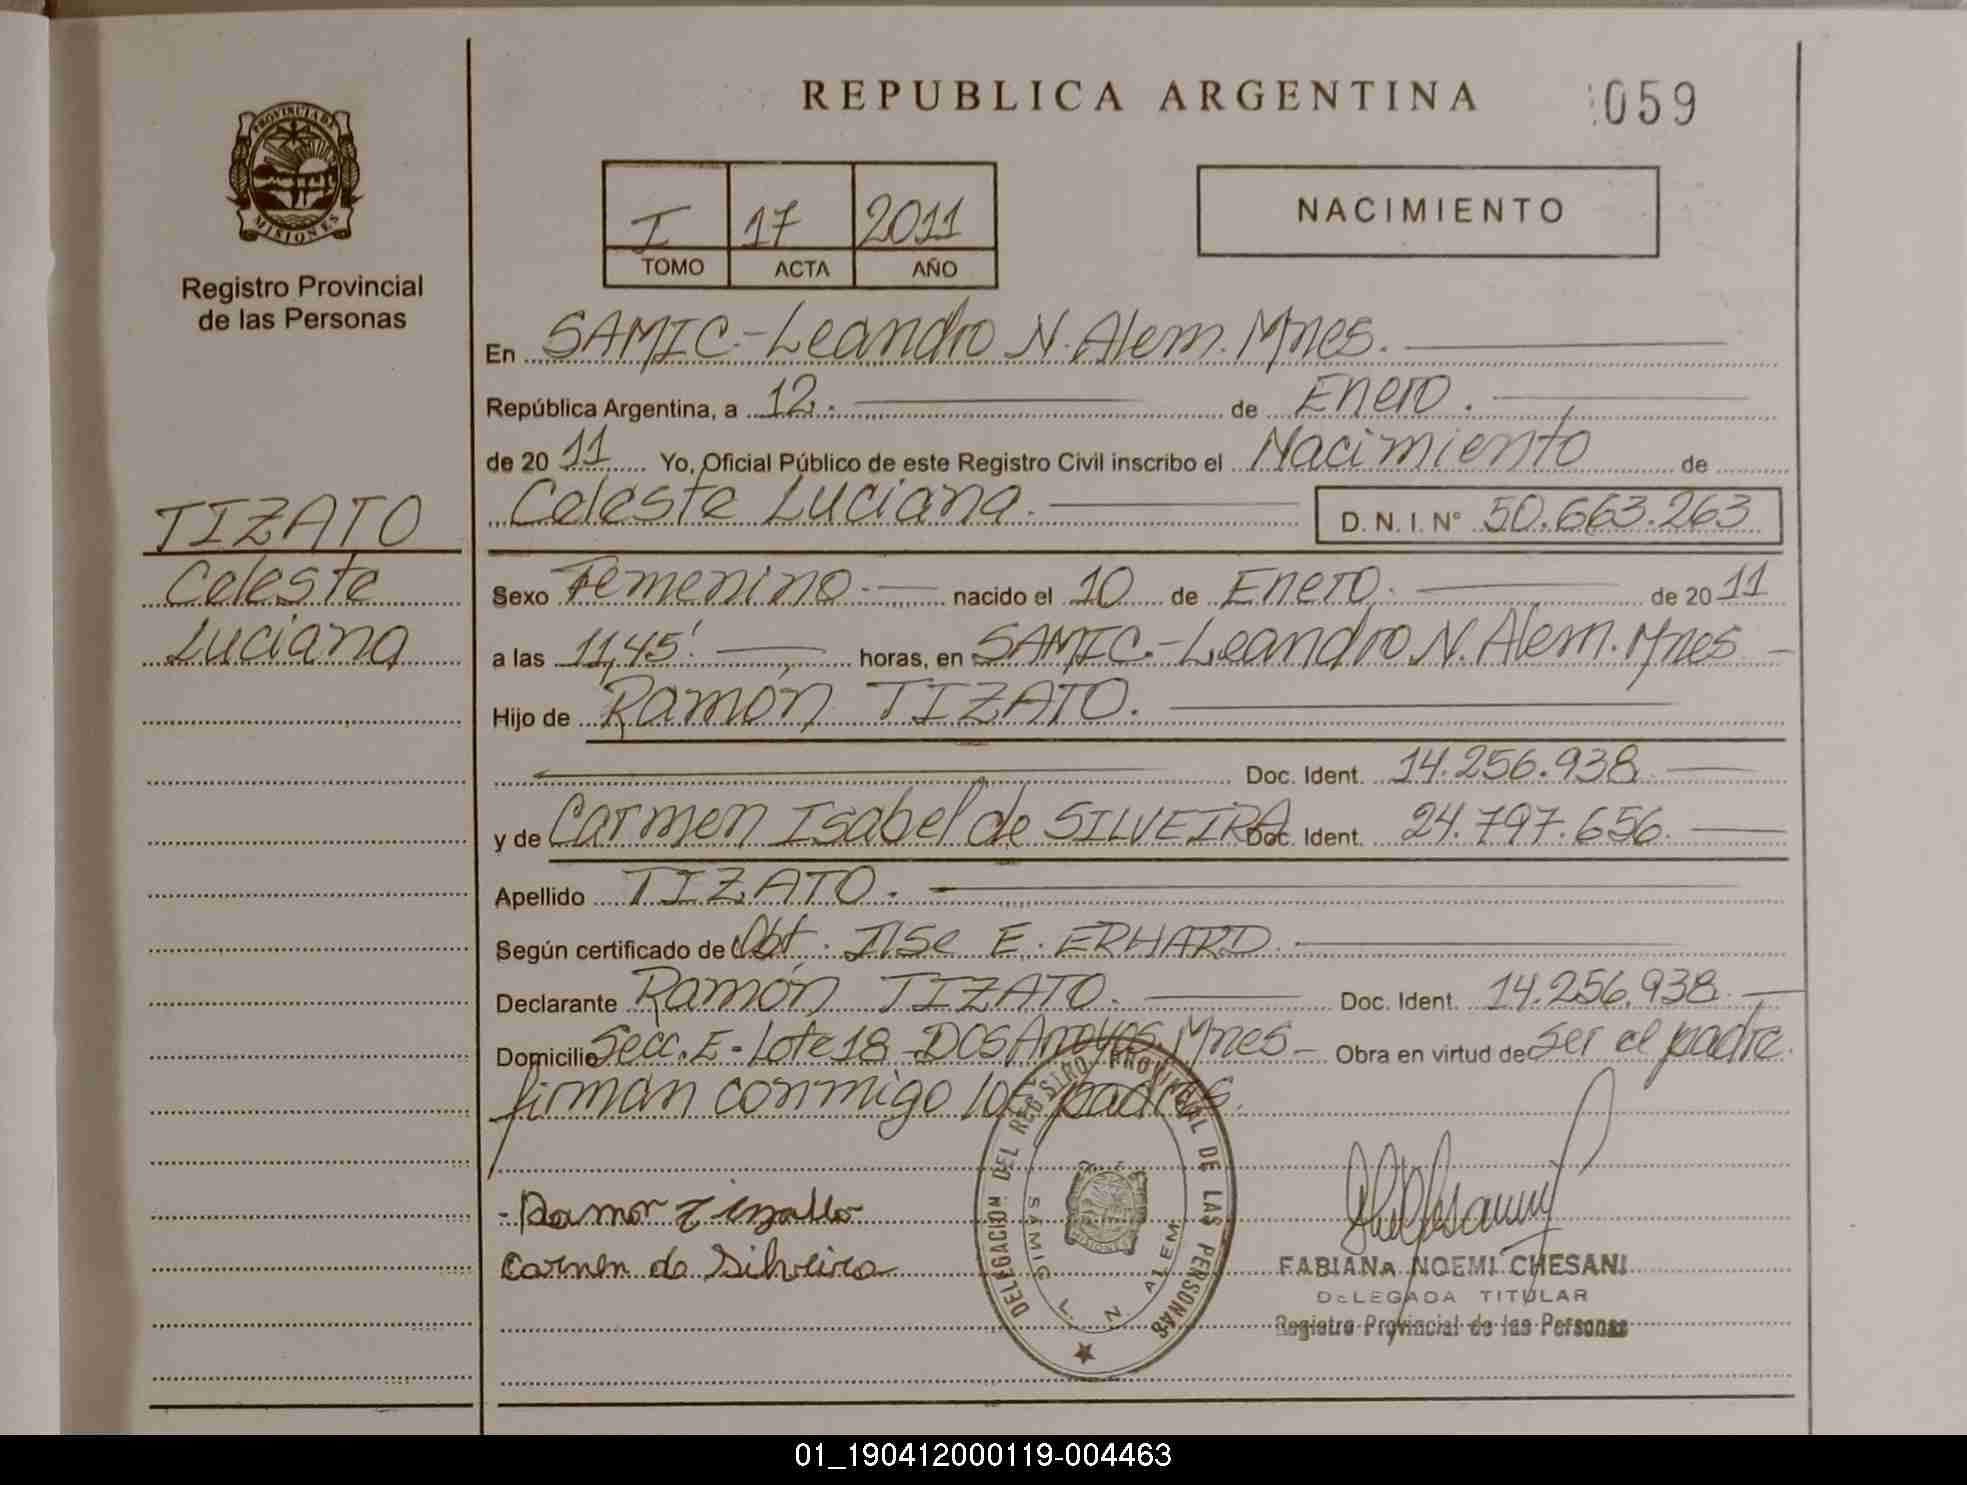 REPUBLICA ARGENTINA
059
PROVINCIA DE
MISIONES
Registro Provincial
de las Personas
I 17 2011
TOMO ACTA AÑO
NACIMIENTO
En SAMIC.-Leandro N. Alem. Mnes.
República Argentina, a 12. de Enero.
de 20 11 Yo, Oficial Público de este Registro Civil inscribo el Nacimiento de
Celeste Luciana. D. N. I. N° 50.663.263
TIZATO
Celeste
Luciana
Sexo Femenino.- nacido el 10 de Enero. de 20 11
a las 11,45' horas, en SAMIC.-Leandro N. Alem. Mnes
Hijo de Ramón TIZATO.
Doc. Ident. 14.256.938.
y de Carmen Isabel de SILVEIRA Doc. Ident. 24.797.656.
Apellido TIZATO.
Según certificado de Obt. Ilse E. ERHARD.
Declarante Ramón TIZATO. Doc. Ident. 14.256.938.
Domicilio Secc. E - Lote 18 - DOS Arroyos. Mnes Obra en virtud de ser el padre.
firman conmigo los padres.
- Ramon Tizatto
Carmen de Silveira
DELEGACION DEL REGISTRO PROVINCIAL DE LAS PERSONAS
SAMIC L. N. ALEM
MISIONES
FABIANA NOEMI CHESANI
DELEGADA TITULAR
Registro Provincial de las Personas
01_190412000119-004463